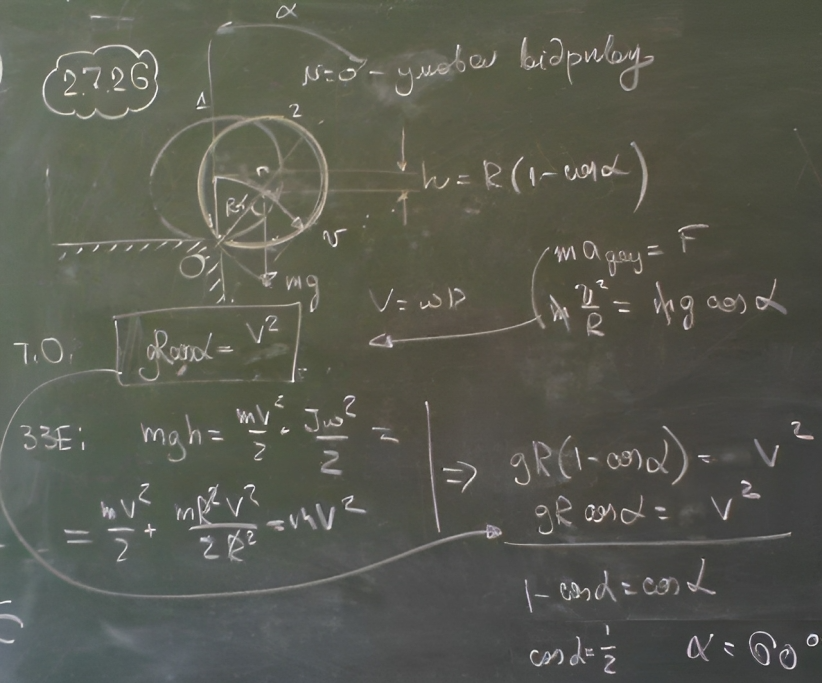 α
2.7.26
N=0 - умова відриву
1
2
h = R(1-cosα)
R
α
r
v
O
mg
m aдоц = F
m v²/R = mg cosα
V = ωR
Т.О.
gRcosα = V²
ЗЗЕ: mgh = mV²/2 + Jω²/2 =
= mV²/2 + mR²V²/2R² = mV²
⇒ gR(1-cosα) = V²
gR cosα = V²
1-cosα = cosα
cosα = 1/2 α = 60°